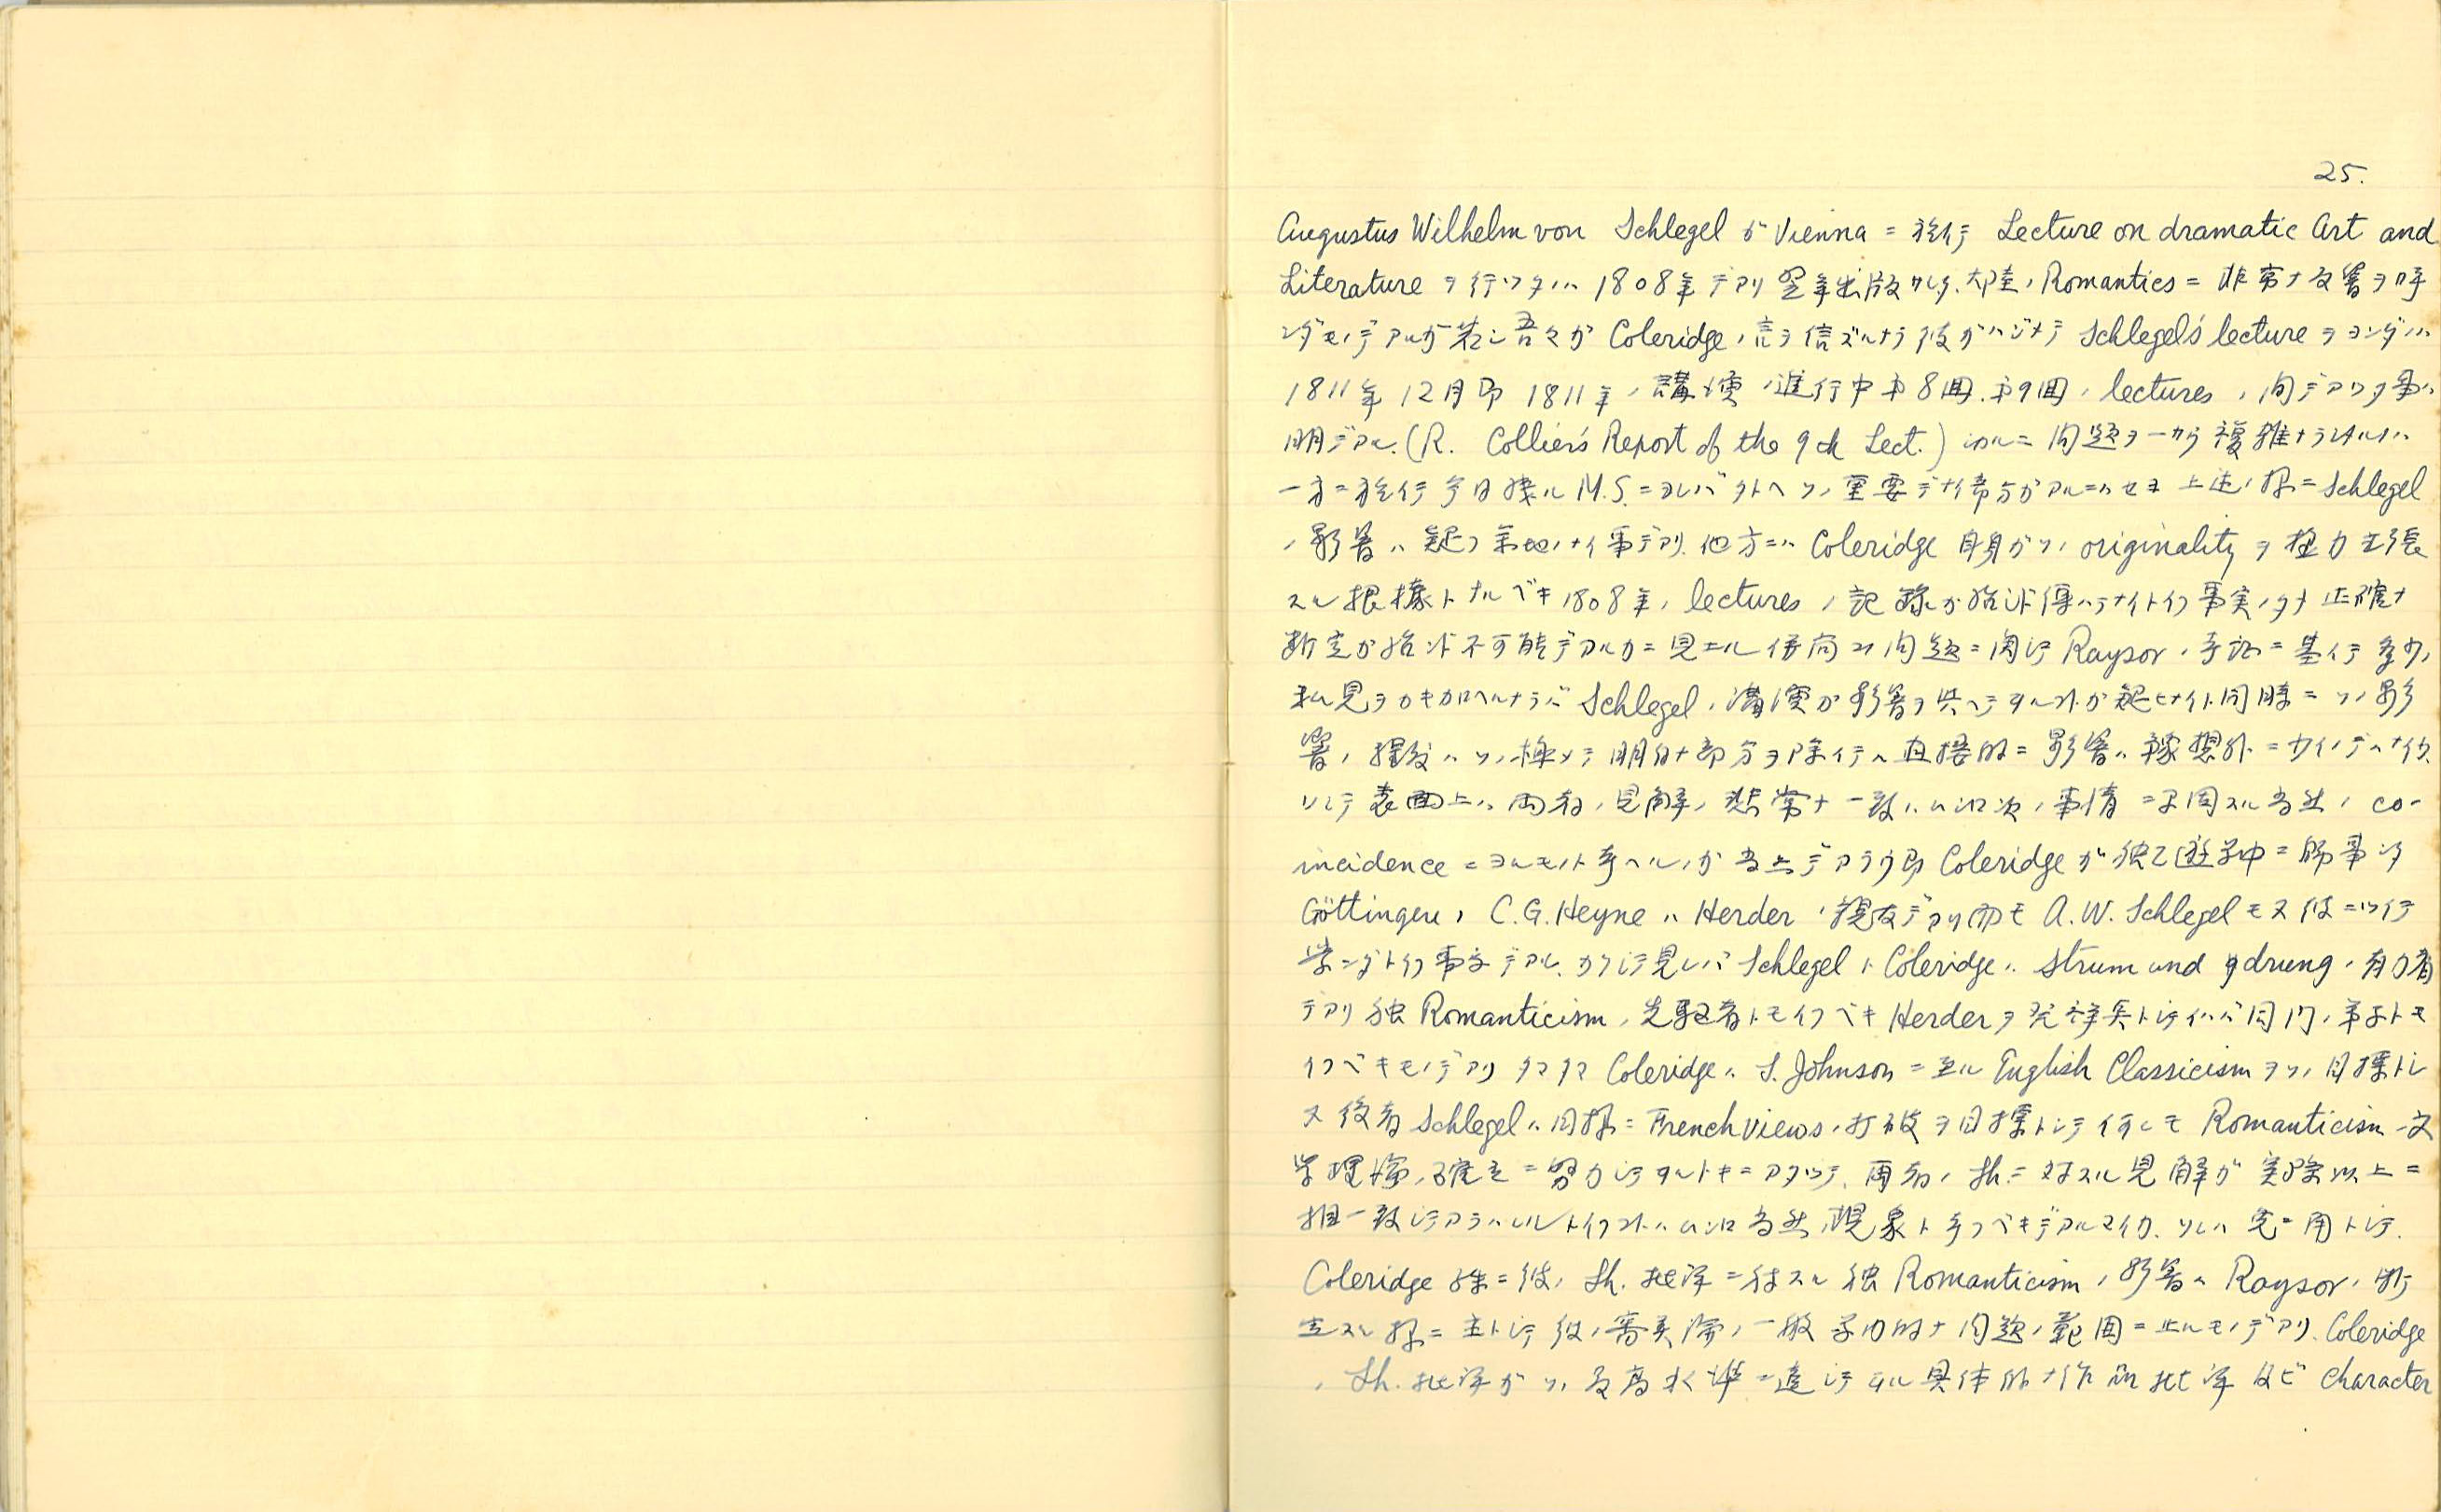 25.
Augustus Wilhelm von Schlegel ガ Vienna ニ於イテ Lecture on dramatic Art and
Literature ヲ行ツタノハ 1808年デアリ翌年出版サレタ. 大陸ノ Romantics ニ非常ナ反響ヲ呼
ンダモノデアルガ若シ吾々ガ Coleridge ノ言ヲ信ズルナラ彼ガハジメテ Schlegel's lecture ヲヨンダノハ
1811年 12月即 1811年ノ講演ノ進行中第8回.第9回ノ lectures ノ間デアツタ事ハ
明デアル. (R. Collier's Report of the 9th Lect.) 然ルニ問題ヲ一層複雑ナラシメルノハ
一方ニ於イテ今日残ル M.S. ニヨレバタトヘソノ重要デナイ部分ガアルニハセヨ上述ノ様ニ Schlegel
ノ影響ハ疑フ余地ノナイ事デアリ. 他方ニハ Coleridge 自身ガソノ originality ヲ極力主張
スル根拠トナルベキ 1808年ノ lectures ノ記録ガ殆ンド傳ハラナイトイフ事実ノタメ正確ナ
断定ガ殆ンド不可能デアルカニ見エル. 併而コノ問題ニ関シテ Raysor ノ考証ニ基イテ多少ノ
私見ヲカキ加ヘルナラバ Schlegel ノ講演ガ影響ヲ与ヘテヰルコトガ疑ヒナイト同時ニソノ影
響ノ程度ハソノ極メテ明白ナ部分ヲ除イテハ直接的ニ影響ハ豫想外ニ少イノデハナイカ.
ソシテ表面上ハ両者ノ見解ノ非常ナ一致ハムシロ次ノ事情ニ原因スル当然ノ co-
incidence ニヨルモノト考ヘルノガ当然デアラウ即 Coleridge ガ独乙遊学中ニ師事シタ
Göttingen ノ C.G. Heyne ハ Herder ノ親友デアリ而モ A.W. Schlegel モ又彼ニツイテ
学ンダトイフ事実デアル. カクシテ見レバ Schlegel ト Coleridge ハ Strum und drung ノ有力者
デアリ独 Romanticism ノ先駆者トモイフベキ Herder ヲ発祥点トシテイハバ同門ノ弟子トモ
イフベキモノデアリ タマタマ Coleridge ハ S. Johnson ニ至ル English Classicism ヲソノ目標トシ
又後者 Schlegel ハ同様ニ French Views ノ打破ヲ目標トシテ何レモ Romanticism ノ文
学理論ノ確立ニ努力シテヰルトキニアタツテ. 両者ノ Sh. ニ対スル見解ガ実際以上ニ
相一致シテアラハレルトイフコトハムシロ当然ノ現象ト考フベキデアルマイカ. ソレハ兎ニ角トシテ.
Coleridge 殊ニ彼ノ Sh. 批評ニ対スル独 Romanticism ノ影響ハ Raysor ノ断
言スル様ニ主トシテ彼ノ審美学ノ一般学的ナ問題ノ範囲ニ止ルモノデアリ. Coleridge
ノ Sh. 批評ガソノ最高水準ニ達シテヰル具体的ナ作品批評及ビ character